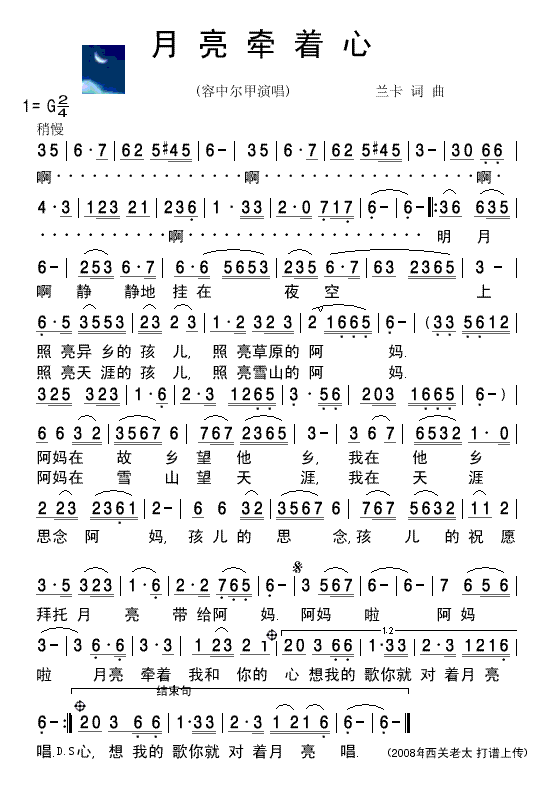 月亮牵着心
(容中尔甲演唱) 兰卡 词 曲
1= G 2/4
稍慢
3 5 | 6 · 7 | 6 2 5 #4 5 | 6 - | 3 5 | 6 · 7 | 6 2 5 #4 5 | 3 - | 3 0 6 6 |
啊 · · · · · · · · · · · · · · · 啊 · · · · · · · · · · · · · · · · · 啊 ·
4 · 3 | 1 2 3 2 1 | 2 3 6 | 1 · 3 3 | 2 · 0 7 1 7 | 6 - | 6 - ‖: 3 6 6 3 5 |
· · · · · · · · · · · 啊 · · · · · · · · · · · · · · · · · · · 明 月
6 - | 2 5 3 6 · 7 | 6 · 6 5 6 5 3 | 2 3 5 6 · 7 | 6 3 2 3 6 5 | 3 - |
啊 静 静地 挂 在 夜 空 上
6 · 5 3 5 5 3 | 2 3 2 3 | 1 · 2 3 2 3 | 2 1 6 6 5 | 6 - | (3 3 5 6 1 2 |
照 亮异 乡的 孩 儿, 照 亮草原的 阿 妈.
照 亮天 涯的 孩 儿, 照 亮雪山的 阿 妈.
3 2 5 3 2 3 | 1 · 6 | 2 · 3 1 2 6 5 | 3 · 5 6 | 2 0 3 1 6 6 5 | 6 - ) |
6 6 3 2 | 3 5 6 7 6 | 7 6 7 2 3 6 5 | 3 - | 3 6 7 | 6 5 3 2 1 · 0 |
阿妈在 故 乡 望 他 乡, 我在 他 乡
阿妈在 雪 山 望 天 涯, 我在 天 涯
2 2 3 2 3 6 1 | 2 - | 6 6 3 2 | 3 5 6 7 6 | 7 6 7 5 6 3 2 | 1 1 2 |
思念 阿 妈, 孩 儿 的 思 念,孩 儿 的 祝 愿
3 · 5 3 2 3 | 1 · 6 | 2 · 2 7 6 5 | 6 - | 3 5 6 7 | 6 - | 6 - | 7 6 5 6 |
拜托 月 亮 带 给阿 妈. 阿妈 啦 阿 妈
3 - | 3 6 · 6 | 3 · 3 | 1 2 3 2 1 | 1.2 2 0 3 6 6 | 1 · 3 3 | 2 · 3 1 2 1 6 |
啦 月亮 牵着 我和 你的 心 想我的 歌你就 对 着月 亮
结束句
6 - :‖ 2 0 3 6 6 | 1 · 3 3 | 2 · 3 1 2 1 6 | 6 - | 6 - ‖
唱.D.S心, 想 我的 歌你就 对 着月 亮 唱. (2008年西关老太 打谱上传)